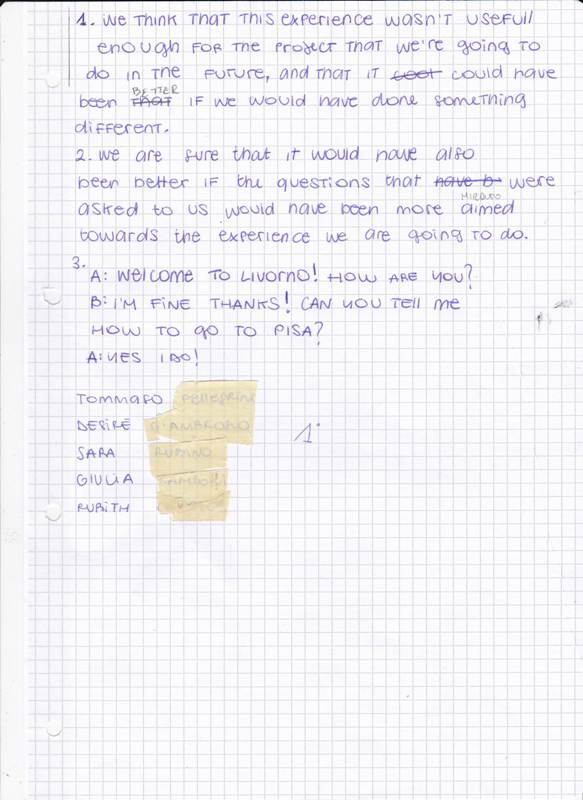 1. We THINK THAT THIS experience wasn't usefull
enough FOR THE project that we're going TO
do in THE FUTURE, and that IT could have
been BETTER IF we would have done something
different.
2. we are sure that it would have also
been better IF the questions that were
asked to us would have been more aimed MIRATO
towards the experience we are going to do.
3.
A: Welcome TO LIVORNO! HOW ARE YOU?
B: I'M FINE THANKS! CAN YOU Tell me
HOW TO GO TO PISA?
A: YES I DO!
TOMMASO PELLEGRINI
DESIRÈ D'AMBROSIO
SARA RUBINO
GIULIA
RUBITH
1°